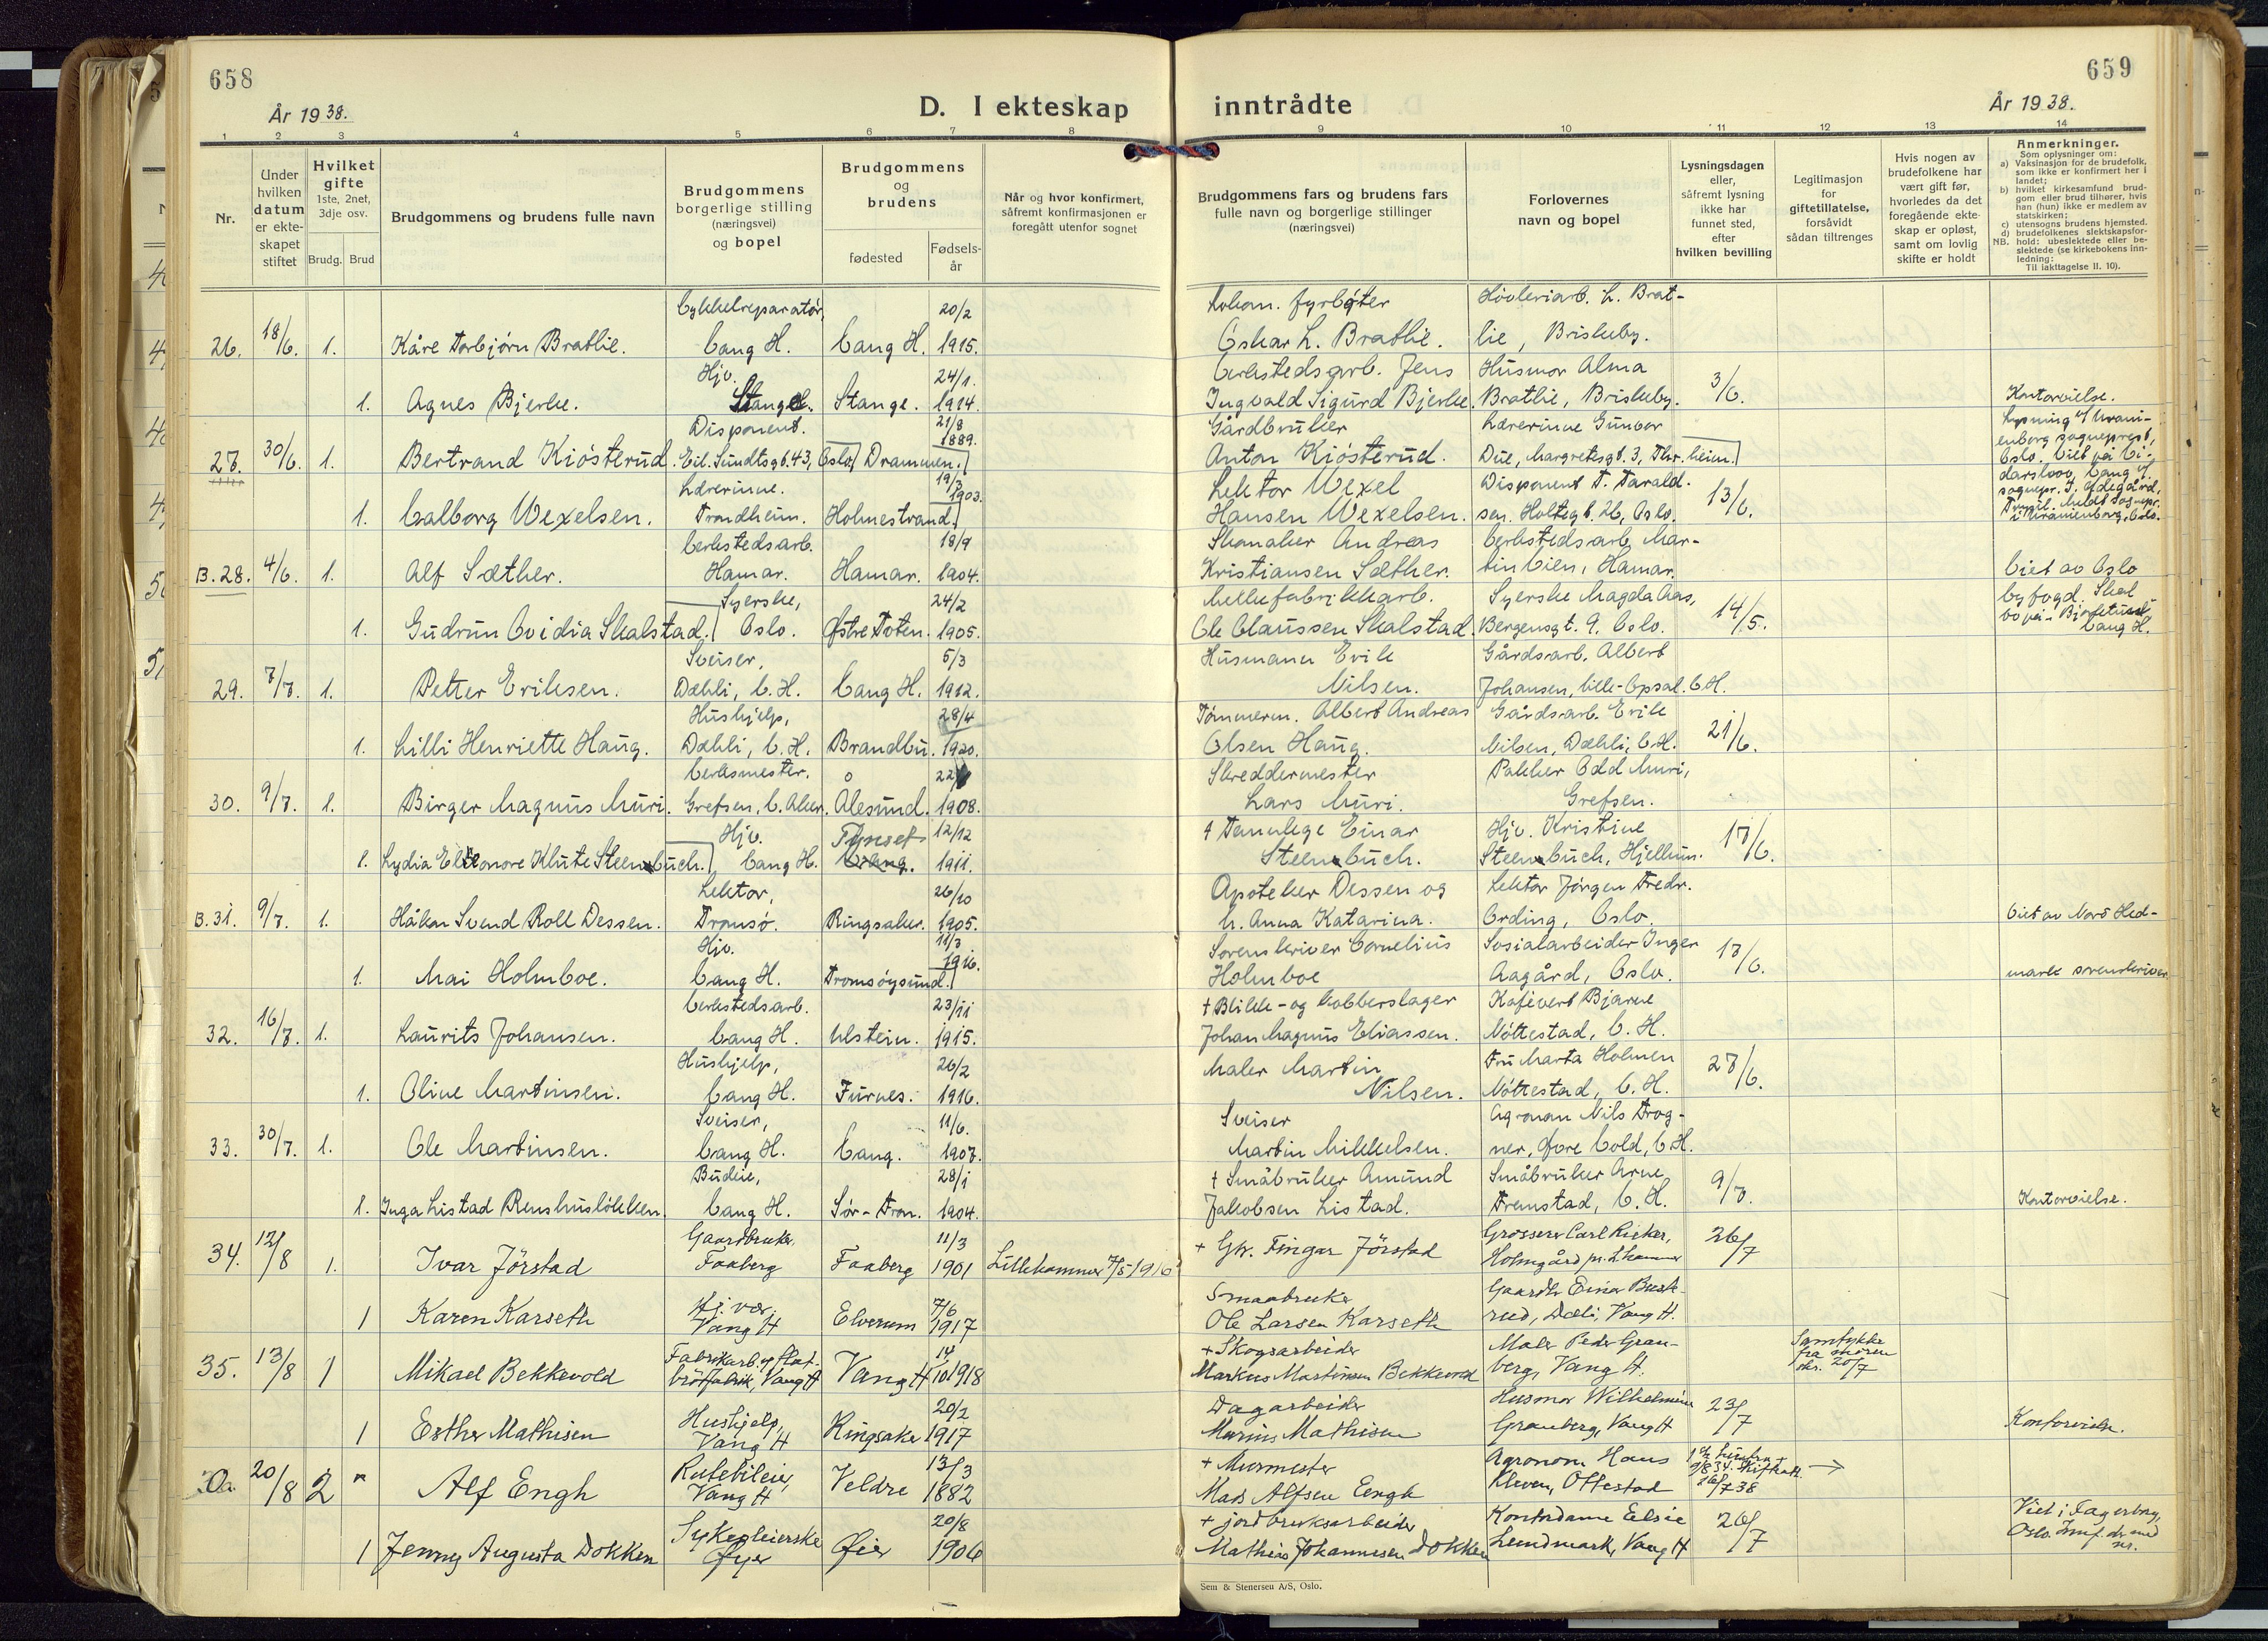 658
År 1938.
D. I ekteskap
inntrådte
659
År 1938.
1 2 3 4 5 6 7 8 9 10 11 12 13 14
Nr.
Under hvilken datum er ekte-skapet stiftet
Hvilket gifte
1ste, 2net, 3dje osv.
Brudg. Brud
Brudgommens og brudens fulle navn
Brudgommens borgerlige stilling (næringsvei) og bopel
Brudgommens og brudens
fødested
Fødsels-år
Når og hvor konfirmert, såfremt konfirmasjonen er foregått utenfor sognet
Brudgommens fars og brudens fars fulle navn og borgerlige stillinger (næringsvei)
Forlovernes navn og bopel
Lysningsdagen eller, såfremt lysning ikke har funnet sted, efter hvilken bevilling
Legitimasjon for giftetillatelse, forsåvidt sådan tiltrenges
Hvis nogen av brudefolkene har vært gift før, hvorledes da det foregående ekte-skap er opløst, samt om lovlig skifte er holdt
Anmerkninger.
Som oplysninger om:
a) Vaksinasjon for de brudefolk, som ikke er konfirmert her i landet;
b) hvilket kirkesamfund brud-gom eller brud tilhører, hvis han (hun) ikke er medlem av statskirken;
c) utensogns brudens hjemsted.
d) brudefolkenes slektskapsfor-hold: ubeslektede eller be-slektede (se kirkebokens inn-ledning:
NB.
Til iakttagelse II. 10).
26. 18/6. 1. Kåre Torbjørn Bratlie. Cykkelreparatør, Vang H. Vang H. 20/2 1915. Lokom. fyrbøter Oskar L. Bratlie. Høvleriarb. L. Brat-lie, Briskeby.
1. Agnes Bjerke. Hjv. Stange. Stange. 24/1. 1914. Verkstedsarb. Jens Ingvald Sigurd Bjerke. Husmor Alma Bratlie, Briskeby. 3/6. Kontorvielse.
27. 30/6. 1. Bertrand Kiøsterud. Disponent. Eil. Sundtsgt. 43, Oslo Drammen. 21/8 1889. Gårdbruker Anton Kiøsterud. Lærerinne Gunvor Due, Margretesgt. 3, Thr.heim. Lysning i Urani-enborg sogneprest, Oslo. Viet på Vi-
1. Valborg Wexelsen. Lærerinne. Trondheim. Holmestrand. 19/3 1903. Lektor Wexel Hansen Wexelsen. Disponent T. Tarald-sen. Holtegt. 26, Oslo. 13/6. darsvoll, Vang v. sognepr. J. Ødegård, Uranienborg, Oslo.
B. 28. 4/6. 1. Alf Sæther. Verkstedsarb. Hamar. Hamar. 18/9 1904. Skomaker Andreas Kristiansen Sæther. Verkstedsarb. Mar-tin Vien, Hamar. Viet av Oslo
1. Gudrun Ovidia Skalstad. Syerske, Oslo. Østre Toten. 24/2 1905. Mellefabrikkarb. Ole Claussen Skalstad. Syerske Magda Aas, Bergensgt. 9. Oslo. 14/5. byfogd. Skal bo på Bjørketun, Vang H.
29. 7/7. 1. Petter Eriksen. Sveiser, Dæhli, V. H. Vang H. 5/3 1912. Husmann Erik Nilsen. Gårdsarb. Albert Johansen, Lille-Opsal. V. H.
1. Lilli Henriette Haug. Hushjelp, Dæhli, V. H. Brandbu. 28/4 1920. Tømmerm. Albert Andreas Olsen Haug. Gårdsarb. Erik Nilsen, Dæhli, V. H. 21/6.
30. 9/7. 1. Birger Magnus Muri. Verksmester. Grefsen, V. Aker. Ålesund. 22/ 1908. Skreddermester Lars Muri. Pakker Odd Muri, Grefsen.
1. Lydia Eleonore Klute Steenbuch. Hjv. Vang H. Tynset 12/12 1911. † Tannlege Einar Steenbuch. Hjv. Kristine Steenbuch, Hjellum. 17/6.
B. 31. 9/7. 1. Håkon Svend Roll Dessen. Lektor, Tromsø. Ringsaker. 26/10 1905. Apoteker Dessen og h. Anna Katarina. Lektor Jørgen Fredr. Ording, Oslo. Viet av Nord Hed-
1. Mai Holmboe. Hjv. Vang H. Tromsøysund. 11/3 1916. Sorenskriver Cornelius Holmboe Sosialarbeider Inger Aagård, Oslo. 17/6. mark sorenskriver
32. 16/7. 1. Laurits Johansen. Verkstedsarb. Vang H. Ulstein. 23/11 1915. † Blikk- og kobberslager Johan Magnus Eliassen. Kafévert Bjarne Nøttestad, V. H.
1. Oline Martinsen. Hushjelp, Vang H. Furnes. 26/2 1916. Maler Martin Nilsen. Fru Marta Holmen Nøttestad, V. H. 27/6.
33. 30/7. 1. Ole Martinsen. Sveiser, Vang H. Vang. 11/6. 1907. Sveiser Martin Mikkelsen. Agronom Nils Frog-ner, Øvre Vold, V. H.
1. Inga Listad Renshusløkken. Budeie, Vang H. Sør-Fron. 28/1 1904. † Småbruker Amund Jakobsen Listad. Småbruker Arne Fremstad, V. H. 9/7. Kontorvielse.
34. 12/8 1. Ivar Jörstad Gaardbruker, Faaberg Faaberg 11/3 1901 Lillehammer 7/5 1916 + Gbr. Fingar Jörstad Grosserer Carl Ricker, Holmgård pr. Lhammer 26/7
1 Karen Karseth Hj. vær. Vang H Elverum 7/6 1917 Smaabruker Ole Larsen Karseth Gaardbr Einar Bust-rud, Dæli, Vang H.
35. 13/8 1 Mikael Bekkevold Fabrikarb. v/ flat-brødfabrik, Vang H Vang H 14/10 1918 + Skogsarbeider Markus Martinsen Bekkevold Maler Peder Gran-berg, Vang H. Samtykke fra moren 20/7
1 Esther Mathisen Hushjelp, Vang H Ringsaker 20/2 1917 Dagarbeider Marius Mathisen Husmor Wilhelmine Granberg, Vang H 23/7 Kontorvielse.
20/8 2 Alf Engh Rutebileier, Vang H Veldre 13/3 1882 + Murmester Mads Alfsen Eengh Agronom Hans Kleven, Ottestad 16/7 38 →
1 Jenny Augusta Dokken Sykepleierske Øyer Øier 20/8 1906 + jordbruksarbeider Mathias Johannesen Dokken Kontordame Elsie Lundmark, Vang H 26/7 Viet i Fagerborg, Oslo.
Sem & Stenersen A/S, Oslo.